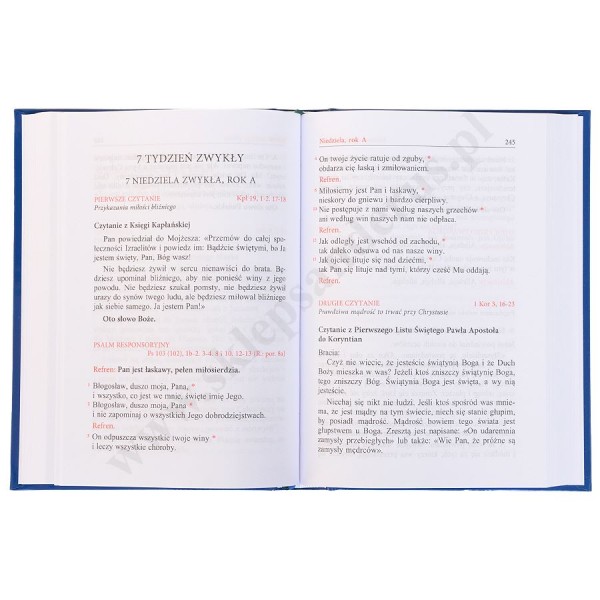 7 TYDZIEŃ ZWYKŁY
7 NIEDZIELA ZWYKŁA, ROK A
PIERWSZE CZYTANIE Kpł 19, 1-2. 17-18
Przykazania miłości bliźniego
Czytanie z Księgi Kapłańskiej
Pan powiedział do Mojżesza: «Przemów do całej spo-
łeczności Izraelitów i powiedz im: Bądźcie świętymi, bo Ja
jestem święty, Pan, Bóg wasz!
Nie będziesz żywił w sercu nienawiści do brata. Będziesz
upominał bliźniego, aby nie ponieść winy z jego
powodu. Nie będziesz szukał pomsty, nie będziesz żywił
urazy do synów twego ludu, ale będziesz miłował bliźniego
jak siebie samego. Ja jestem Pan!»
Oto słowo Boże.
PSALM RESPONSORYJNY
Ps 103 (102), 1b-2. 3-4. 8 i 10. 12-13 (R.: por. 8a)
Refren: Pan jest łaskawy, pełen miłosierdzia.
Błogosław, duszo moja, Pana, *
i wszystko, co jest we mnie, święte imię Jego.
Błogosław, duszo moja, Pana *
i nie zapominaj o wszystkich Jego dobrodziejstwach.
Refren.
On odpuszcza wszystkie twoje winy *
i leczy wszystkie choroby.
Niedziela, rok A 243
On twoje życie ratuje od zguby, *
obdarza cię łaską i zmiłowaniem.
Refren.
Miłosierny jest Pan i łaskawy, *
nieskory do gniewu i bardzo cierpliwy.
Nie postępuje z nami według naszych grzechów *
ani według win naszych nam nie odpłaca.
Refren.
Jak odległy jest wschód od zachodu, *
tak daleko odsuwa od nas nasze winy.
Jak ojciec lituje się nad dziećmi, *
tak Pan się lituje nad tymi, którzy cześć Mu oddają.
Refren.
DRUGIE CZYTANIE 1 Kor 3, 16-23
Prawdziwa mądrość to trwać przy Chrystusie
Czytanie z Pierwszego Listu Świętego Pawła Apostoła
do Koryntian
Bracia:
Czyż nie wiecie, że jesteście świątynią Boga i że Duch
Boży mieszka w was? Jeżeli ktoś zniszczy świątynię Boga,
tego zniszczy Bóg. Świątynia Boga jest święta, a wy nią
jesteście.
Niechaj się nikt nie łudzi. Jeśli ktoś spośród was mnie-
ma, że jest mądry na tym świecie, niech się stanie głupim,
by posiadł mądrość. Mądrość bowiem tego świata jest
głupstwem u Boga. Zresztą jest napisane: «On udaremnia
zamysły przebiegłych» lub także: «Wie Pan, że próżne są
zamysły mędrców».